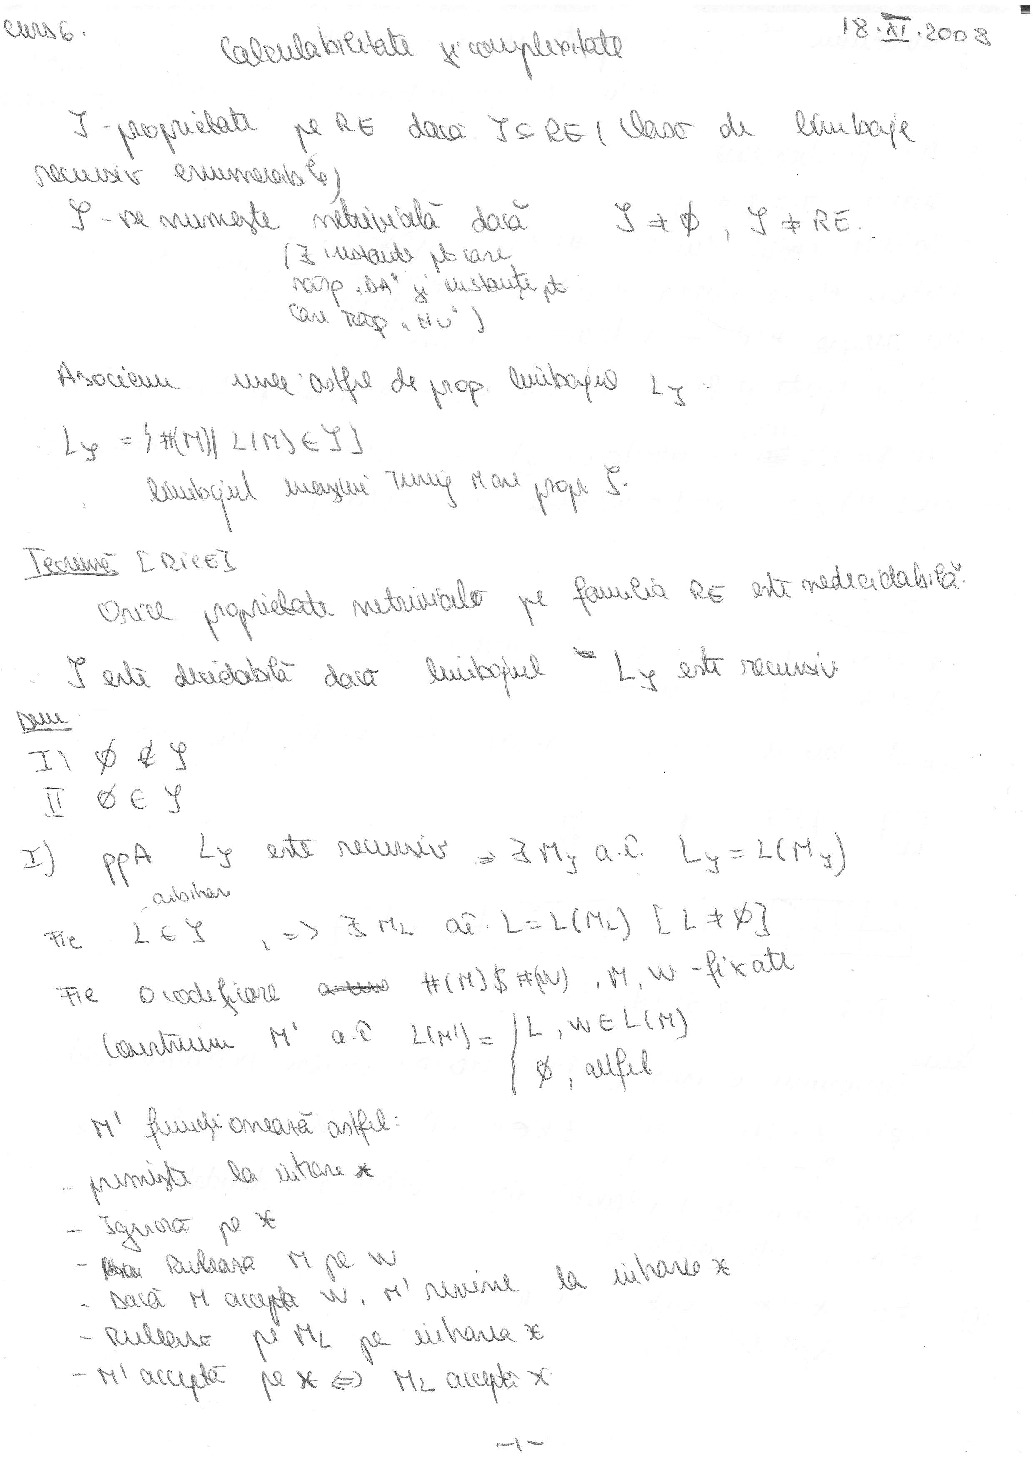 Curs 6. 18.XI.2008
Calculabilitate și complexitate
ℐ - proprietate pe RE dacă ℐ ⊆ RE (clasa de limbaje
recursiv enumerabile)
ℐ - se numește netrivială dacă ℐ ≠ ∅, ℐ ≠ RE.
(∃ instanțe pt care
răsp „DA" și instanțe pt
care răsp „NU")
Asociem unei astfel de prop. limbajul Lℐ.
Lℐ = {#(M) | L(M) ∈ ℐ}
limbajul mașinii Turing M are propr ℐ.
Teoremă [RICE]
Orice proprietate netrivială pe familia RE este nedecidabilă.
ℐ este decidabilă dacă limbajul Lℐ este recursiv
Dem
I) ∅ ∉ ℐ
II ∅ ∈ ℐ
I) ppA Lℐ este recursiv ⇒ ∃ Mℐ a.î. Lℐ = L(Mℐ)
arbitrar
Fie L ∈ ℐ, => ∃ ML aî. L = L(ML) [L ≠ ∅]
Fie o codificare #(M)$#(W), M, W - fixate
Construim M' a.î L(M') = { L, W ∈ L(M)
∅, altfel
M' funcționează astfel:
- primește la intrare x
- Ignoră pe x
- Rulează M pe W
- Dacă M acceptă W, M' revine la intrarea x
- Rulează pe ML pe intrarea x
- M' acceptă pe x ⇔ ML acceptă x
-1-